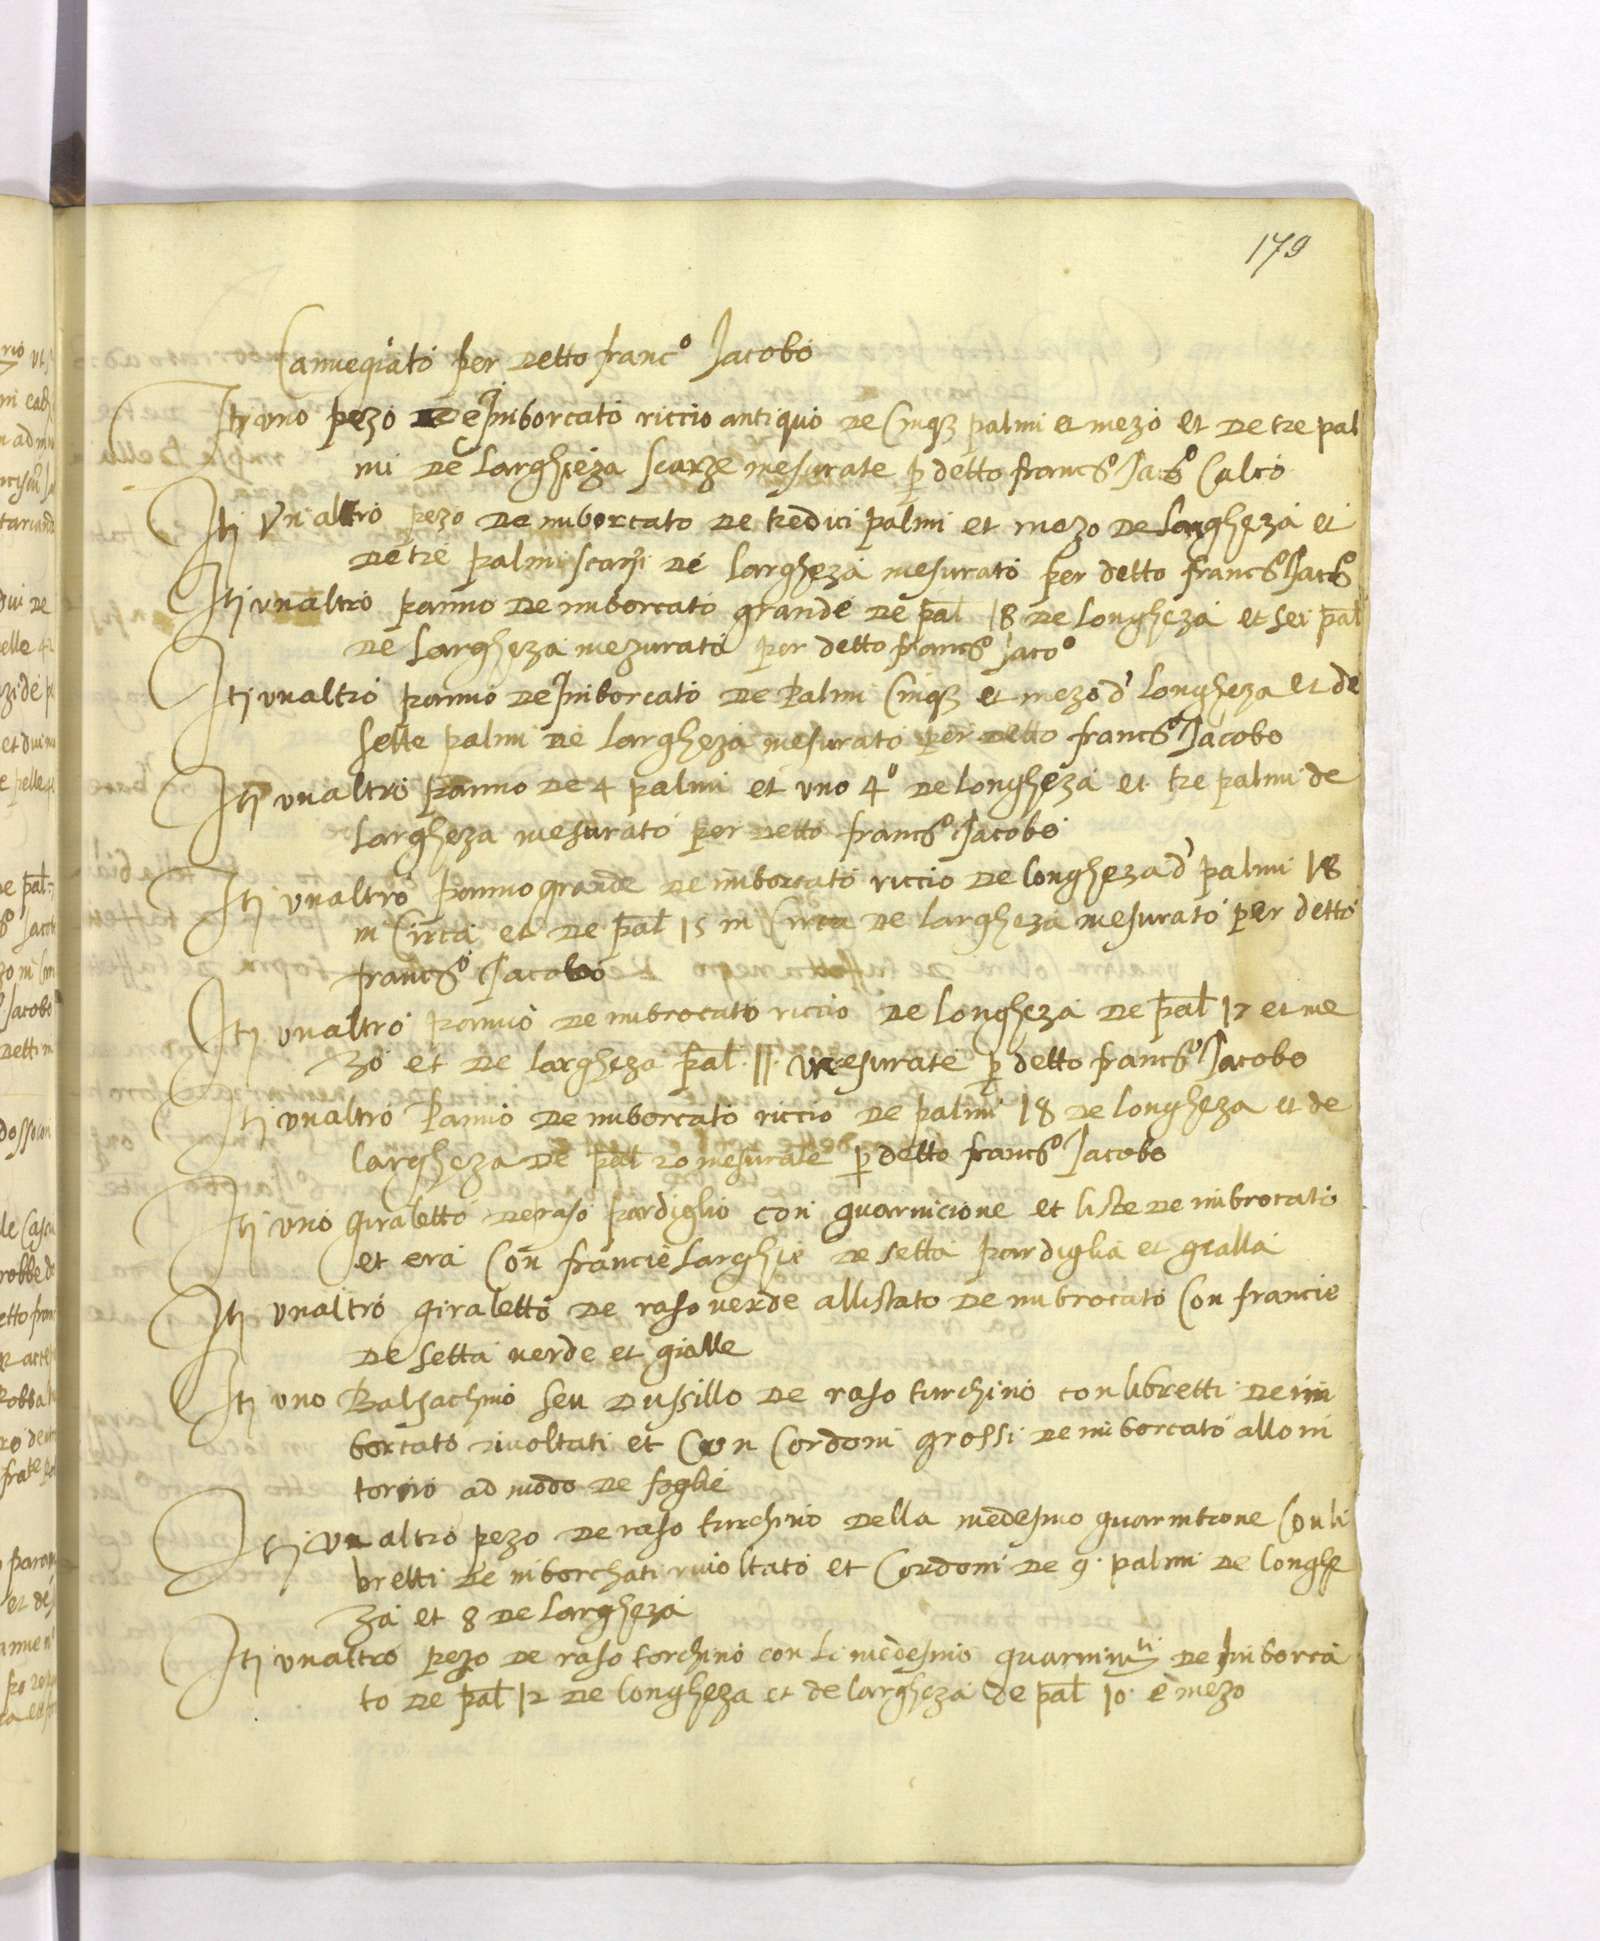 179
Cannegiato per detto franc° Jacobo
Itj uno pezo de Imborcato riccio antiquo de Cinqȝ palmi et mezo et de tre pal
mi de larghieza scarze mesurate p detto francs° Jac° Calco
Itj Vn altro pezo de imborcato de tredici palmi et mezo de longheza et
de tre palmi scarsi de largheza mesurato per detto francs° Jac°
Itj unaltro panno de imborcato grande de pal 18 de longheza et sei pal
de largheza mezurato per detto francs° Jaco°
Itj unaltro panno de Imborcato de Palmi Cinqȝ et mezo d' longheza et de
sette palmi de largheza mesurato per detto francs° Jacobo
Itj unaltro panno de 4 palmi et uno 4° de longheza et tre palmi de
largheza mesurato per detto francs° Jacobo
Itj unaltro panno grande de imborcato riccio de longheza d' palmi 18
in Circa et de pal 15 in Circa de largheza mesurato per detto
francs° Jacobo
Itj unaltro panno de imbrocato riccio de longheza de pal 17 et me
zo et de largheza pal. 11. mesurate p detto francs° Jacobo
Itj unaltro Panno de imborcato riccio de palmi 18 de longheza et de
largheza de pal 20 mesurate p detto francs° Jacobo
Itj uno giraletto de raso pardiglio con guarnicione et liste de imbrocato
et era Con francie larghie de setta pardiglia et gialla
Itj unaltro giraletto de raso uerde allistato de imbrocato Con francie
de setta uerde et gialle
Itj uno Balsachino seu dussillo de raso turchino con libretti de im
borcato riuoltati et Con Cordoni grossi de imborcato allo in
torno ad modo de foglie
Itj Vn altro pezo de raso turchino della medesmo guarnitione Con li
bretti de inborchati riuoltato et Cordoni de 9. palmi de longhe
za et 8 de largheza
Itj unaltro pezo de raso torchino con li medesmo guarnimti de Imborca
to de pal 12 de longheza et de largheza de pal 10 e mezo